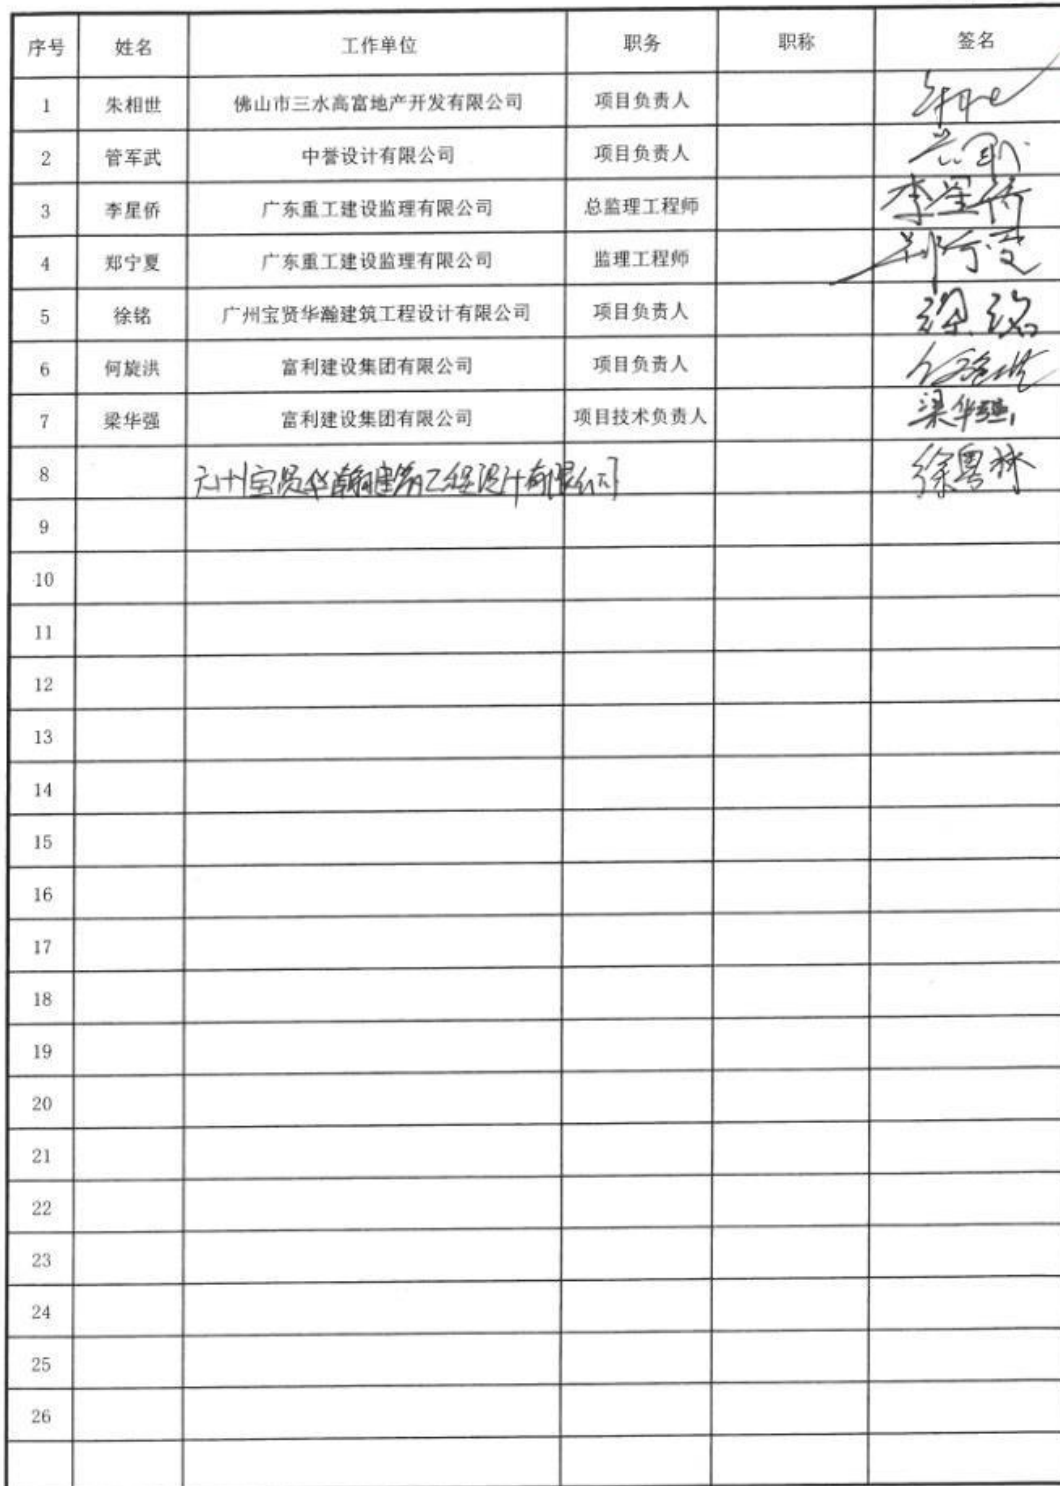 序号 姓名 工作单位 职务 职称 签名
1 朱相世 佛山市三水高富地产开发有限公司 项目负责人
2 管军武 中誉设计有限公司 项目负责人
3 李星侨 广东重工建设监理有限公司 总监理工程师 李星侨
4 郑宁夏 广东重工建设监理有限公司 监理工程师 郑宁夏
5 徐铭 广州宝贤华瀚建筑工程设计有限公司 项目负责人 徐铭
6 何旋洪 富利建设集团有限公司 项目负责人
7 梁华强 富利建设集团有限公司 项目技术负责人 梁华强
8 广州宝贤华瀚建筑工程设计有限公司 徐粤林
9
10
11
12
13
14
15
16
17
18
19
20
21
22
23
24
25
26